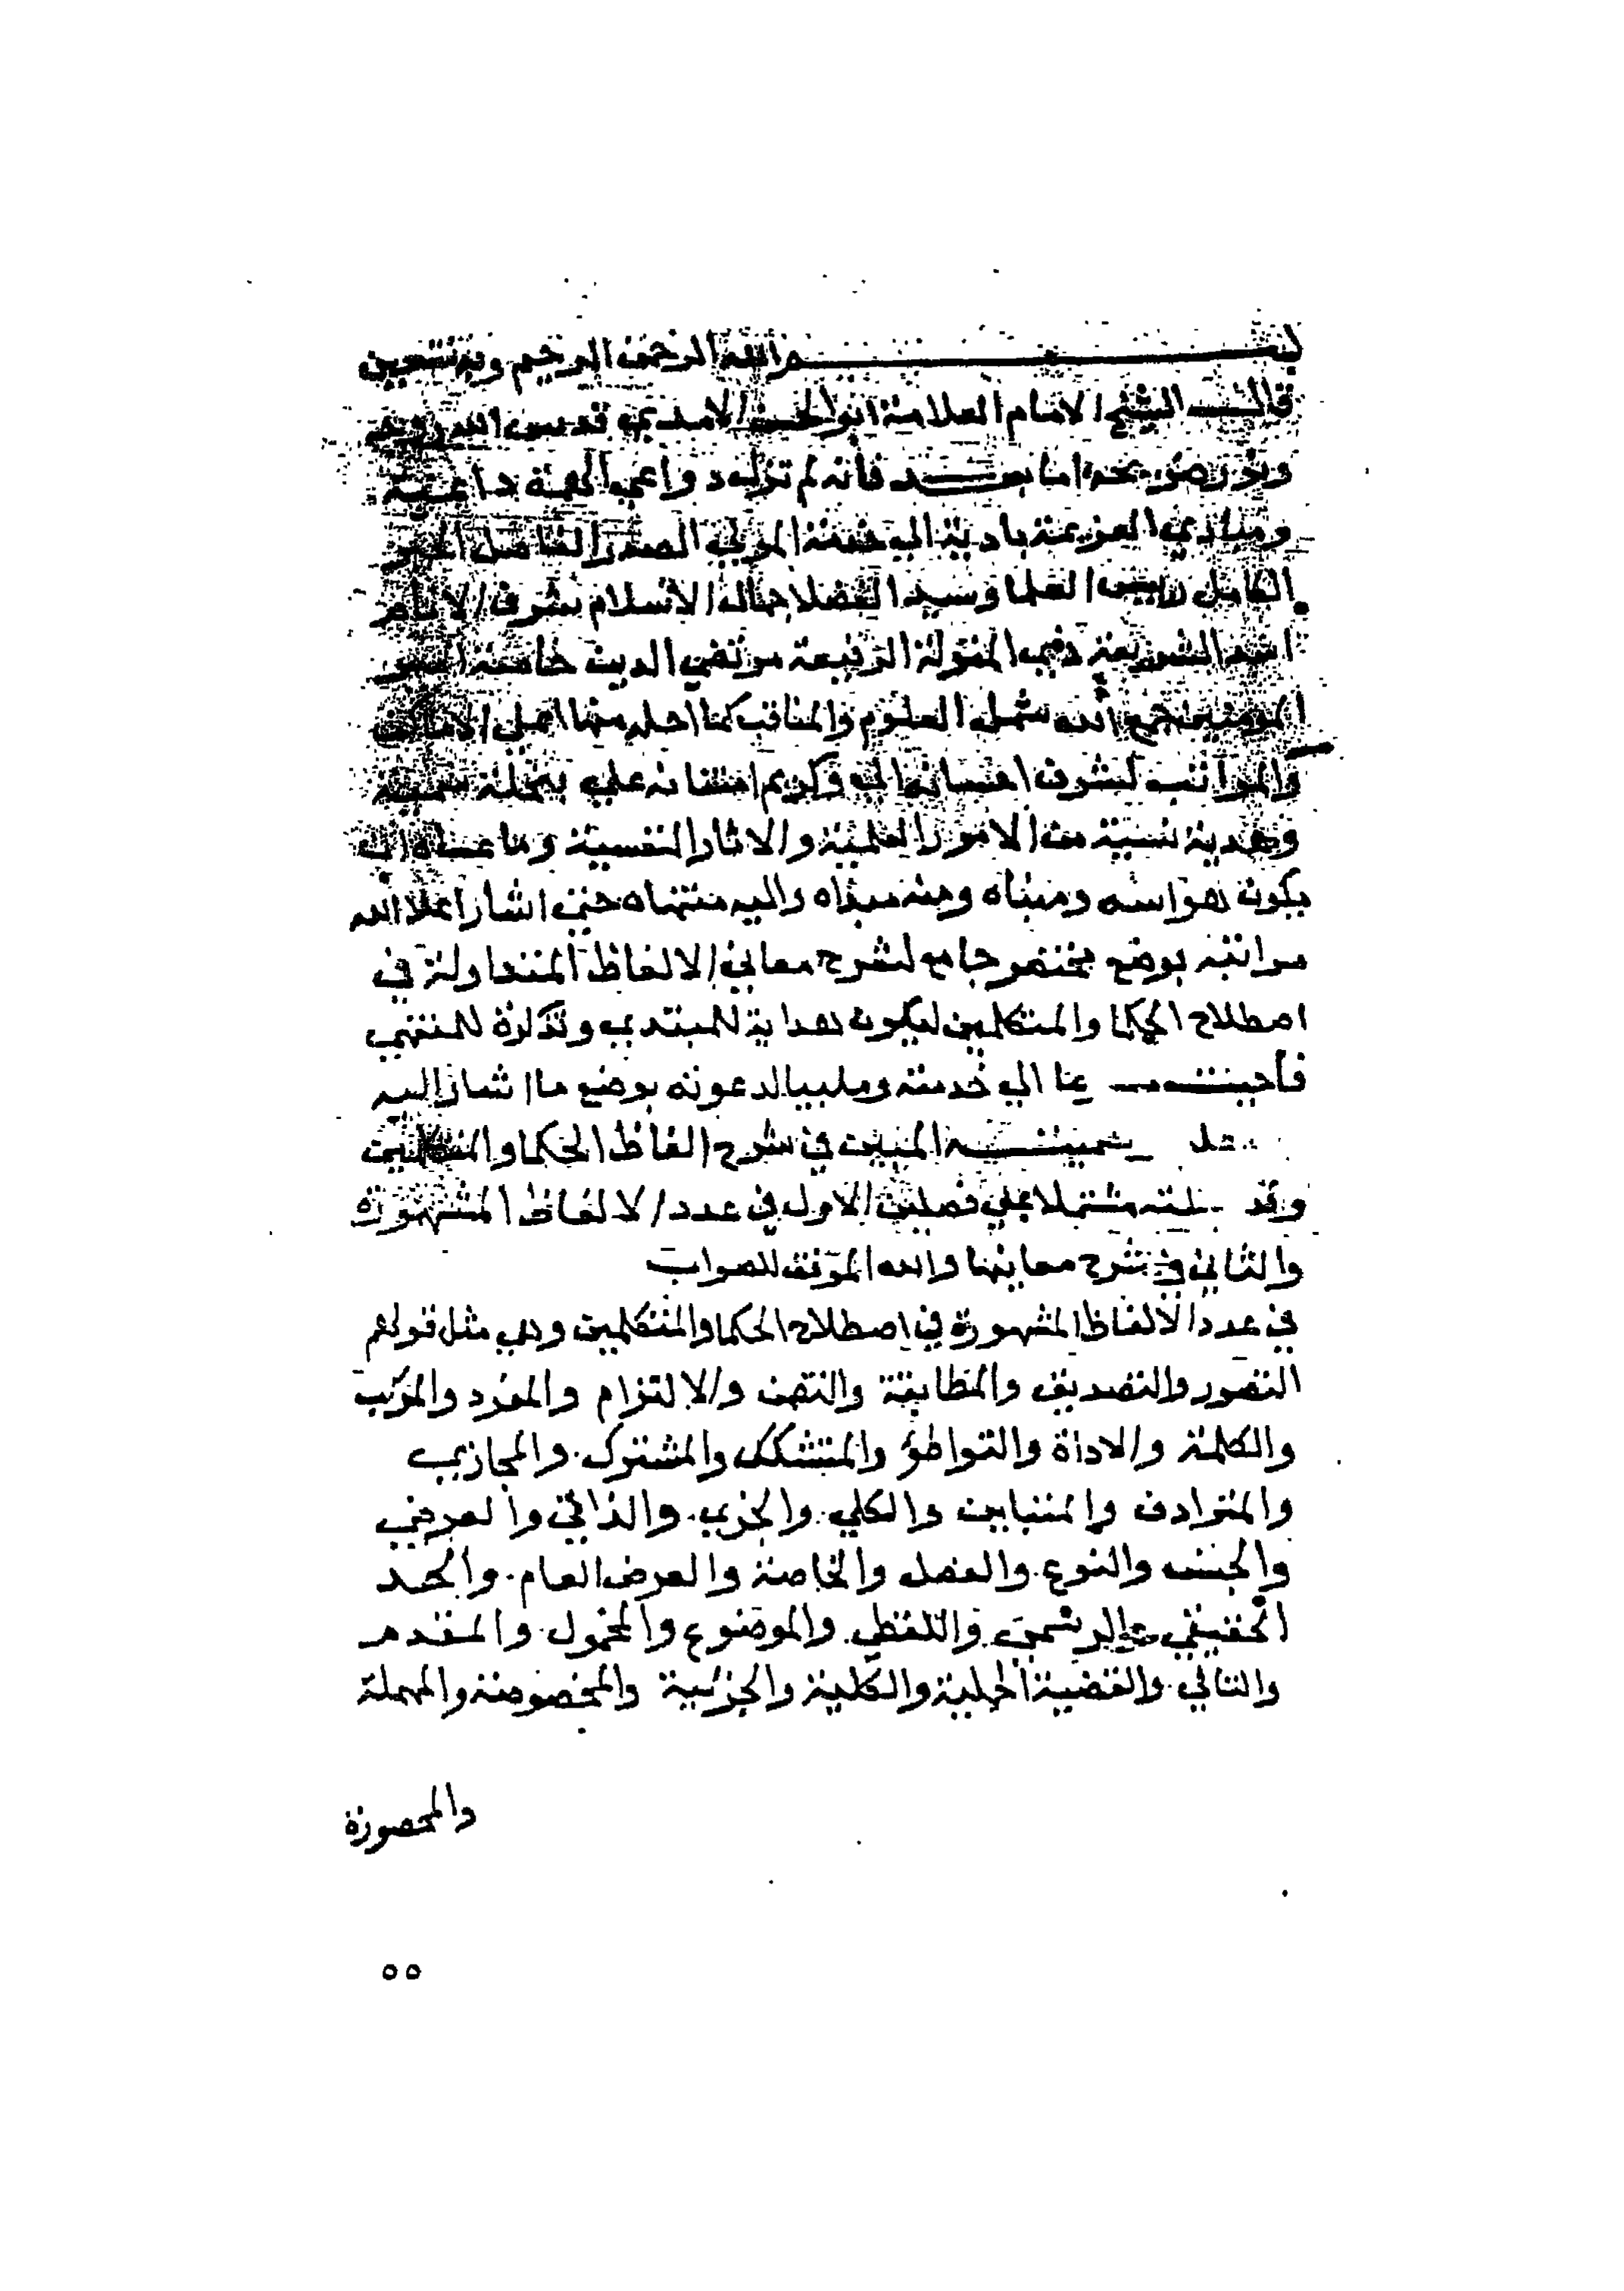 بسم الله الرحمن الرحيم وبه نستعين
قال الشيخ الامام العلامة ابو الحسن الامدي قدس الله روحه
ونور ضريحه اما بعد فانه لم تزل دواعي الهمة داعية
ومبادي العزيمة بادية الي خدمة المولي الصدر الفاضل الحبر
الكامل رايس العلما وسيد الفضلا جمال الاسلام شرف الانام
اسد الشريعة ذي المنزلة الرفيعة مرتضي الدين خاصة امير
المومنين جمع الله شمل العلوم والمناقب كما احله منها اعلى الاماكن
والمراتب لشرف احسانه الي وكريم امتنانه علي بنحلة سمية
وهدية نسية من الامور العلمية والاثار النفسية وما عساه ان
يكون هو اسه ومبناه ومنه مبداه واليه منتهاه حتي اشار اعلا الله
مراتبه بوضع مختصر جامع لشرح معاني الالفاظ المتداولة في
اصطلاح الحكما والمتكلمين ليكون هداية للمبتدي وتذكرة للمنتهي
فأجبته الي خدمته وملبيا لدعوته بوضع ما اشار اليه
المبين في شرح الفاظ الحكما والمتكلمين
وقد مشتملا علي فصلين الاول في عدد الالفاظ المشهورة
والثاني في شرح معانيها والله الموفق للصواب
في عدد الالفاظ المشهورة في اصطلاح الحكما والمتكلمين وهي مثل قولهم
التصور والتصديق والمطابقة والتضمن والالتزام والمفرد والمركب
والكلمة والاداة والتواطؤ والمتشكك والمشترك والمجازي
والمترادف والمتباين والكلي والجزي والذاتي والعرضي
والجنس والنوع والفصل والخاصة والعرض العام والحد
الحقيقي والرسمي واللفظي والموضوع والمحمول والمقدم
والتالي والقضية الحملية والكلية والجزئية والمخصوصة والمهملة
والمحصورة
٥٥